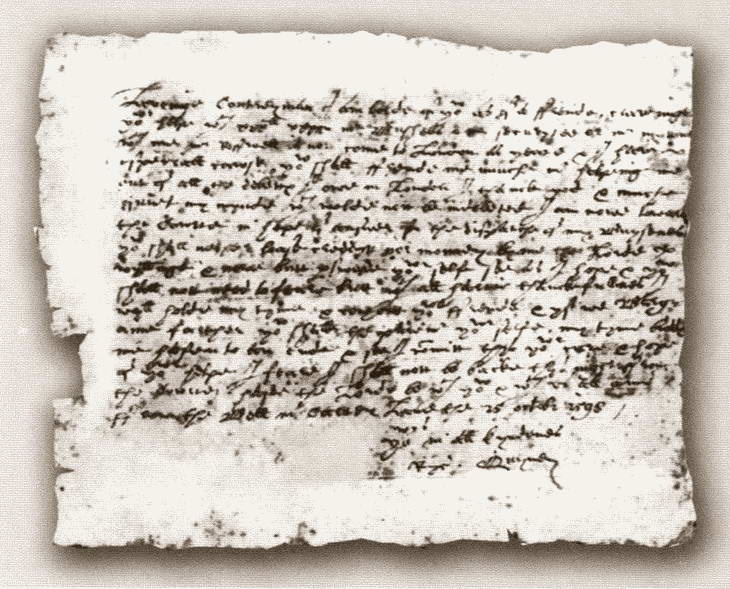 Loveinge Contreyman I am bolde of yow as of a ffrende craveinge
yowr helpe
me mr Rosswell is nott come to London as yeate & I have
especiall cawse yow shall ffrende me muche in helpeing me
out of all the debtts I owe in London I thancke god & muche
quiet my mynde wch wolde nott be indebted I am nowe towards
the Cowrte in hope of answer for the dispatche of my Buysenes
yow shall nether loase creddytt nor monney by me the Lorde
wyllinge & nowe butt perswade yowr selfe soe as I hope & yow
shall nott need to feare butt wth all hartie thanckfullnes
I wyll holde my tyme & content yowr ffrend & yf we Bargaine
farther yow shall be the paiemaster yowr selfe my tyme bidds
me hasten to an ende & soe I committ thys yowr care & hope
of yowr helpe I feare I shall nott be backe thys night ffrom
the Cowrte haste the Lorde be wth yow & wth us all amen
ffrom the Bell in Carter Lane the 25 octobr 1598
yowrs in all kyndenes
Ryc. Quyney